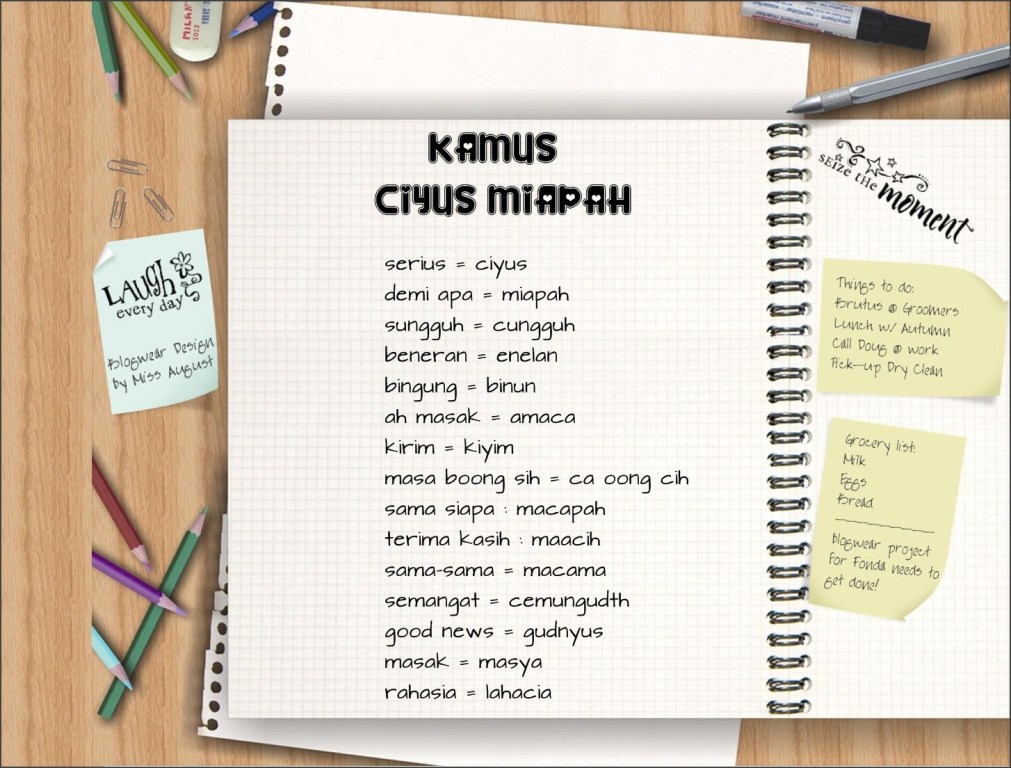 MILAN
1012
permanent marker
KAMUS
CIYUS MIAPAH
serius = ciyus
demi apa = miapah
sungguh = cungguh
beneran = enelan
bingung = binun
ah masak = amaca
kirim = kiyim
masa boong sih = ca oong cih
sama siapa : macapah
terima kasih : maacih
sama-sama = macama
semangat = cemungudth
good news = gudnyus
masak = masya
rahasia = lahacia
LAUGH
every day
Blogwear Design
by Miss August
SEIZE THE
moment
Things to do:
Brutus @ Groomers
Lunch w/ Autumn
Call Doug @ work
Pick-up Dry Clean
Grocery list:
Milk
Eggs
Bread
blogwear project
for Fonda needs to
get done!